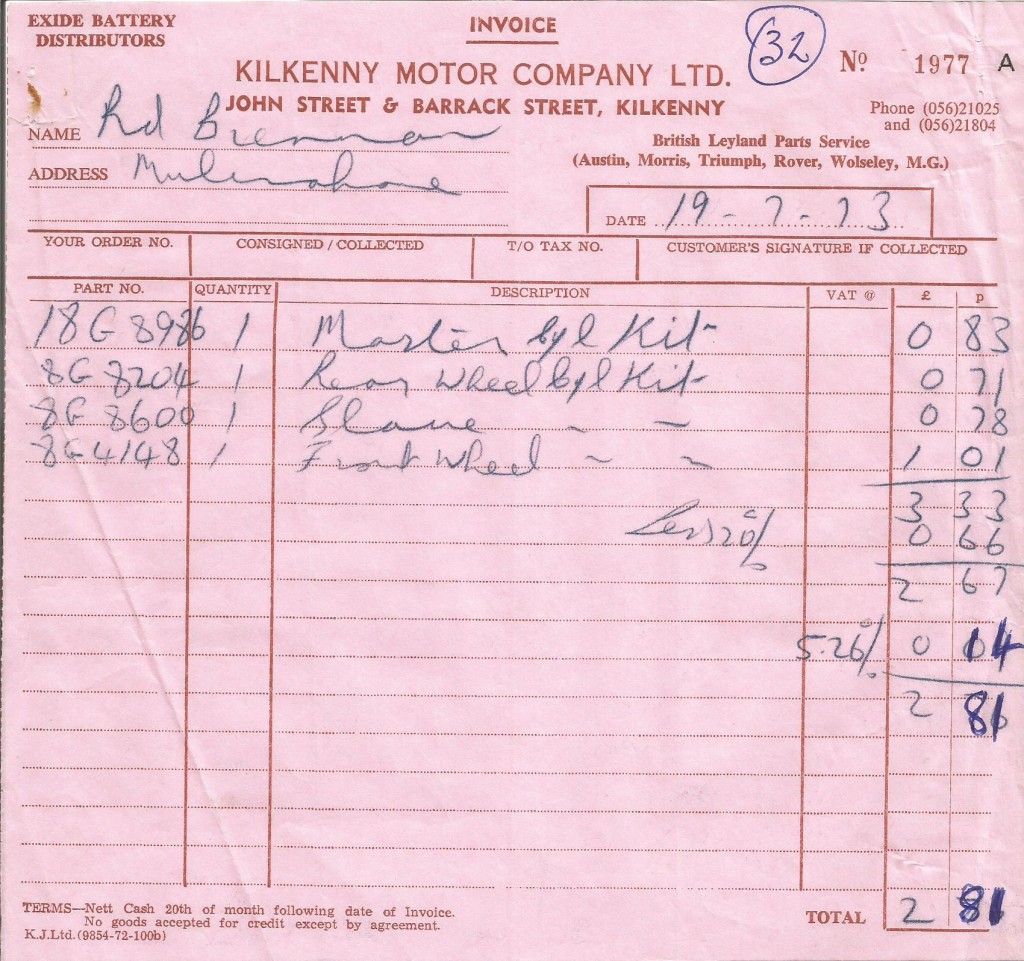 EXIDE BATTERY DISTRIBUTORS
INVOICE
32
Nº 1977 A
KILKENNY MOTOR COMPANY LTD.
JOHN STREET & BARRACK STREET, KILKENNY
Phone (056)21025
and (056)21804
British Leyland Parts Service
(Austin, Morris, Triumph, Rover, Wolseley, M.G.)
NAME Rd Brennan
ADDRESS Mulinahone
DATE 19-7-73
YOUR ORDER NO. CONSIGNED / COLLECTED T/O TAX NO. CUSTOMER'S SIGNATURE IF COLLECTED
PART NO. QUANTITY DESCRIPTION VAT @ £ p
18G 8986 1 Master Cyl Kit 0 83
8G 8204 1 Rear Wheel Cyl Kit 0 71
8G 8600 1 Slave ~ ~ 0 78
8G 4148 1 Front Wheel ~ ~ 1 01
3 33
Less 20% 0 66
2 67
5.26% 0 14
2 81
TERMS—Nett Cash 20th of month following date of Invoice.
No goods accepted for credit except by agreement.
K.J.Ltd.(9854-72-100b)
TOTAL 2 81